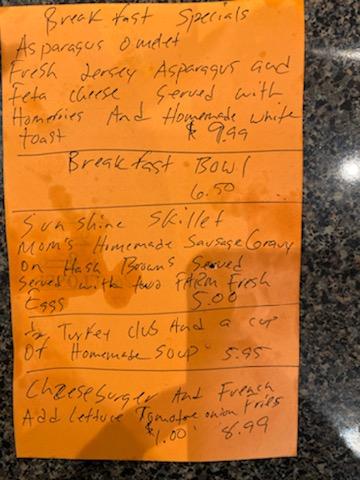 Breakfast Specials
Asparagus Omelet
Fresh Jersey Asparagus and
Feta cheese served with
Homefries And Homemade white
toast $ 9.99
Breakfast Bowl
6.50
Sunshine Skillet
Mom's Homemade Sausage Gravy
on Hash Browns Served
Served with two FARM Fresh
Eggs 5.00
½ Turkey club And a cup
Of Homemade soup 5.95
Cheeseburger And French
Fries
Add lettuce Tomatoe onion
$1.00 8.99